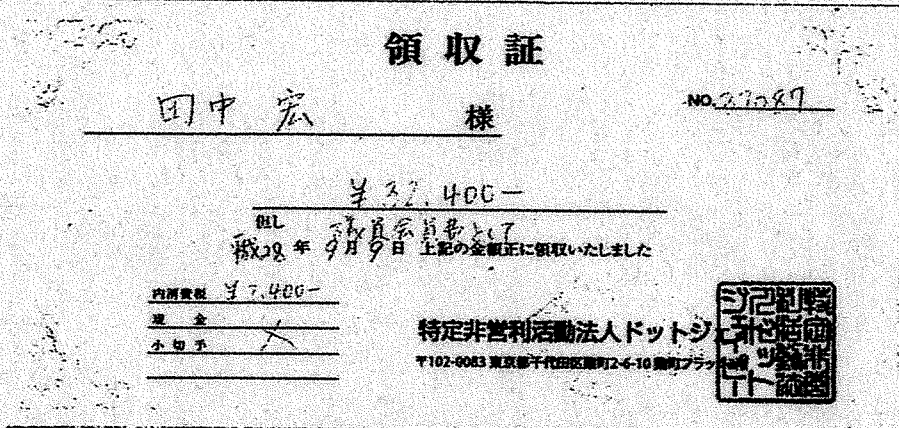 領収証
田中 宏 様
NO. 27087
¥32,400ー
但し 議員会員費として
平成28年 9月9日 上記の金額正に領収いたしました
内消費税 ¥2,400ー
現金
小切手
特定非営利活動法人ドットジェ
〒102-0083 東京都千代田区麹町2-6-10 麹町フラッ